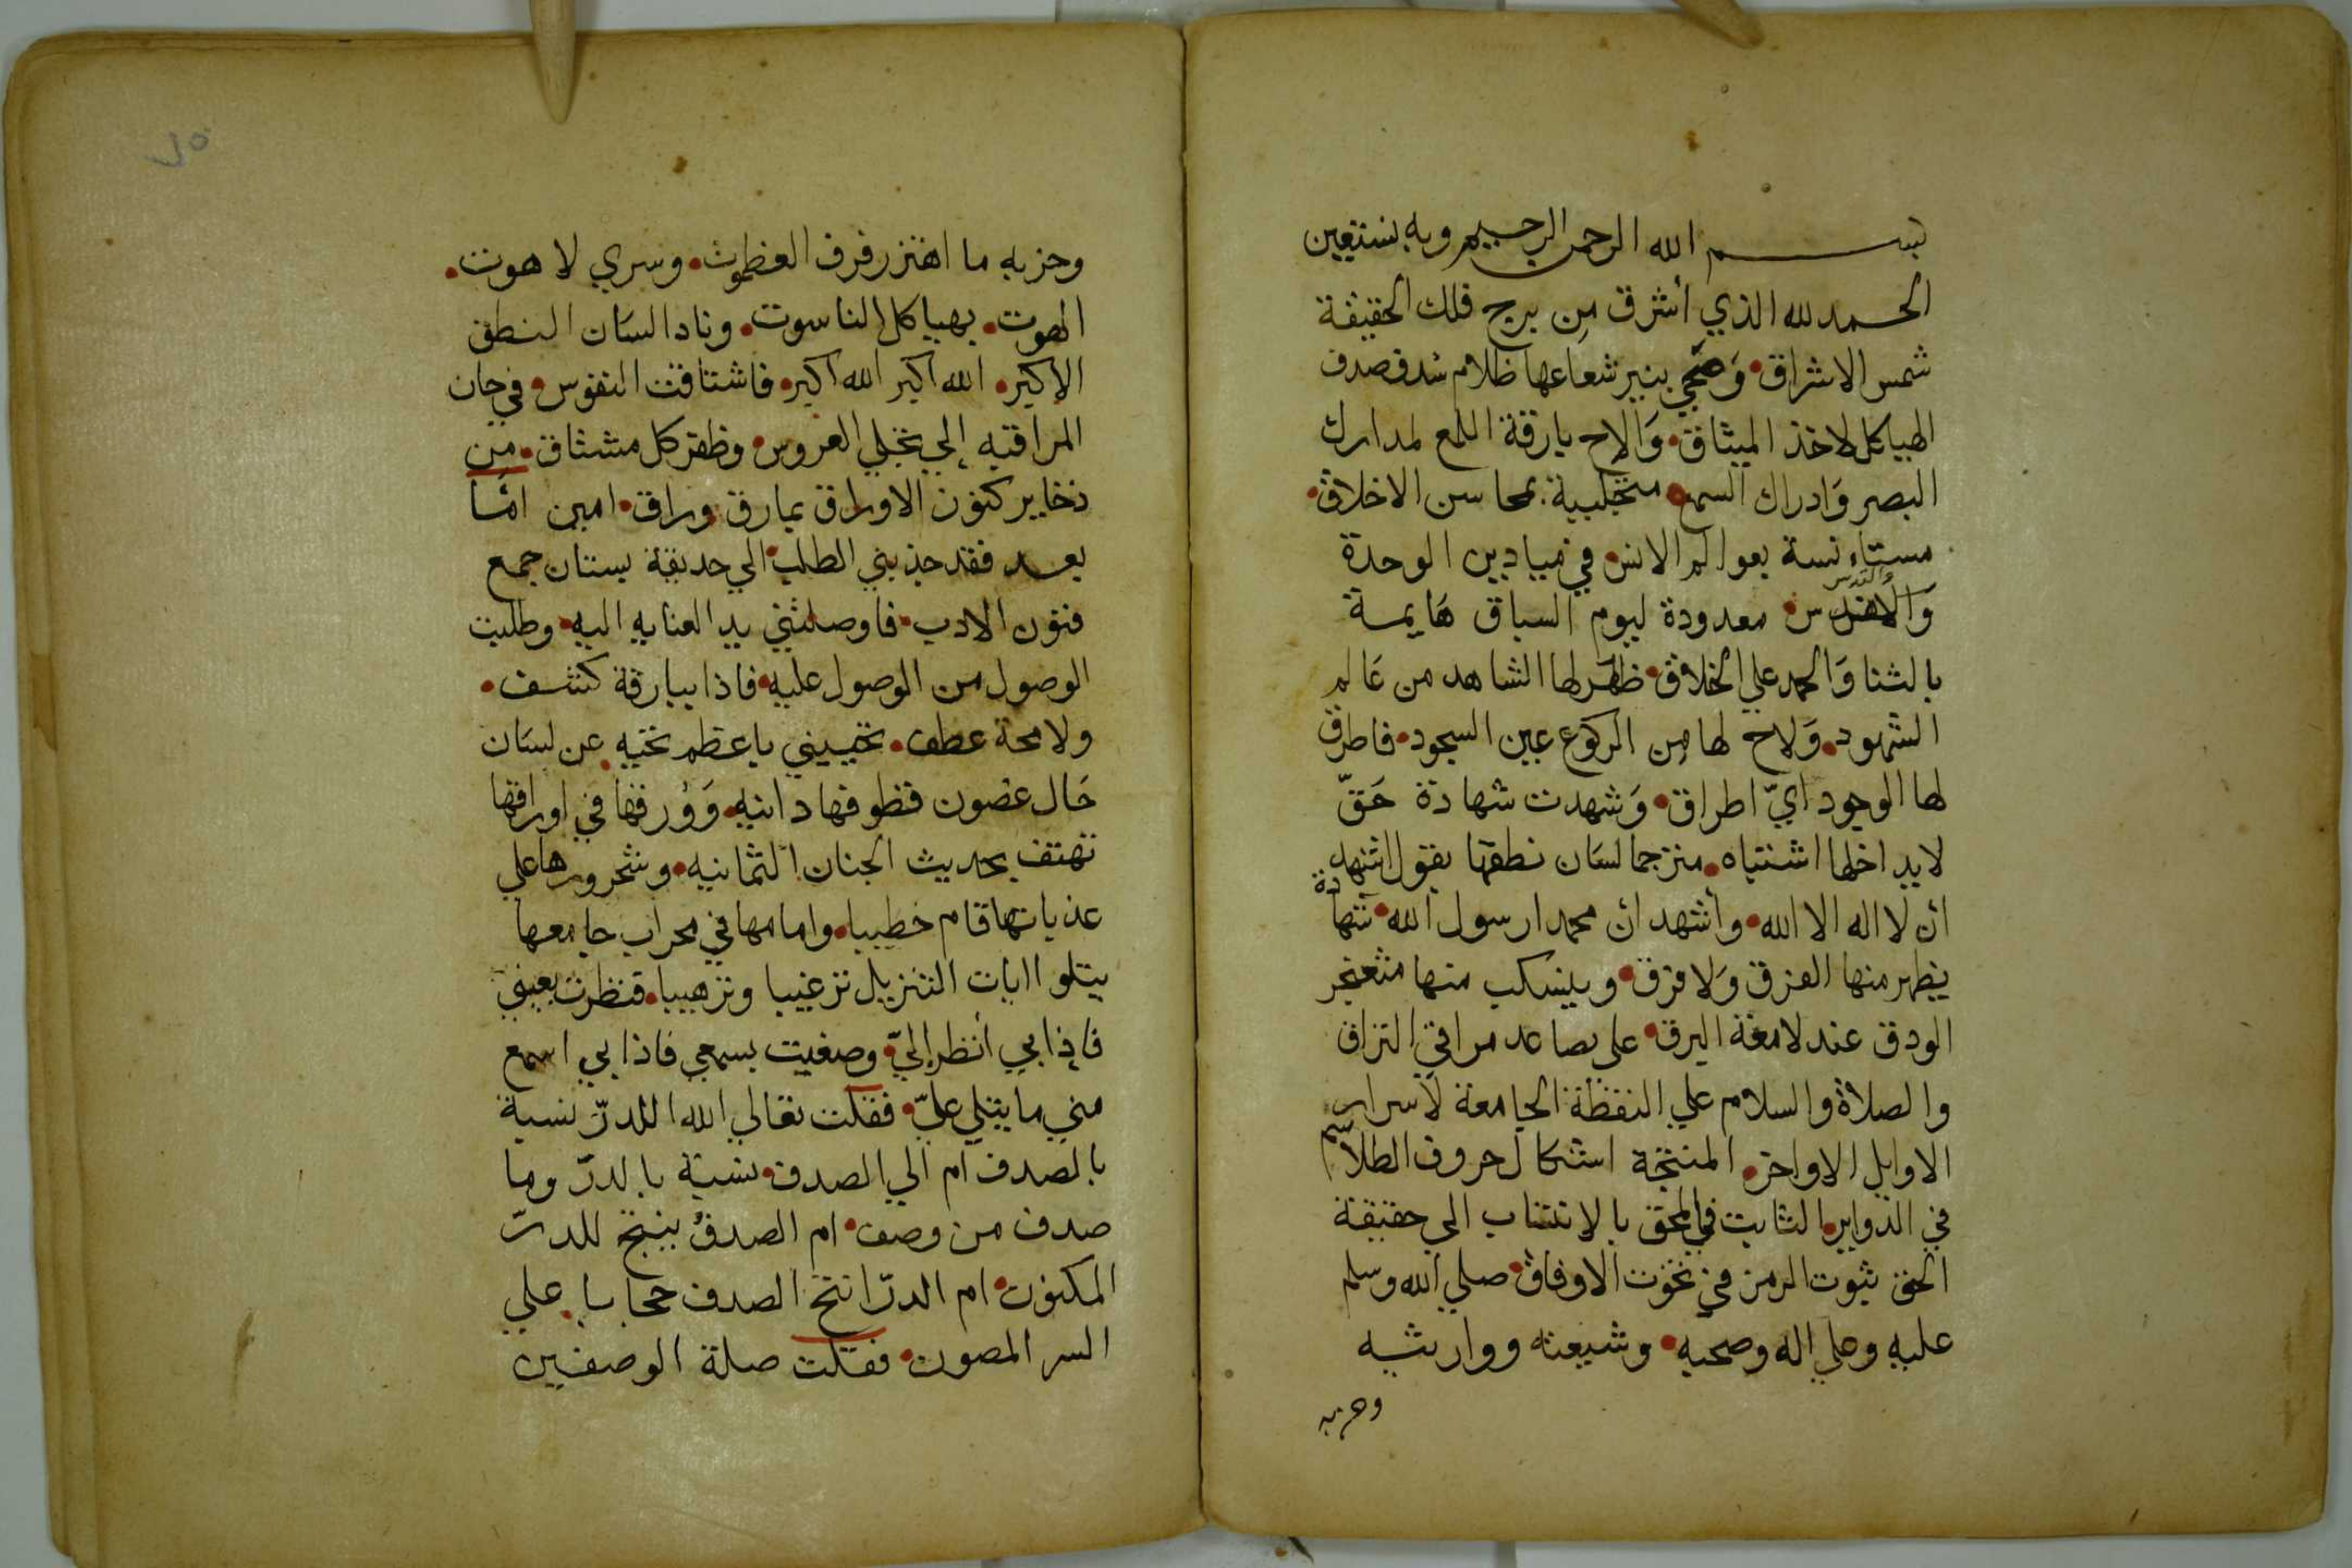 بسم الله الرحمن الرحيم وبه نستعين
الحمد لله الذي أشرق من برج فلك الحقيقة
شمس الاشراق وَضحي بنير شعاعها ظلام سُدف صدف
الهياكل لاخذ الميثاق وَالاح بارقة اللمع لمدارك
البصر وَادراك السمع متجلببة بمحاسن الاخلاق
مستاءنسة بعوالم الانس في ميادين الوحدة
وَالقدس معدودة ليوم السباق هَايمة
بالثنا وَالحمد علي الخلاق ظهَر لها الشاهد من عَالم
الشهود وَلاح لها مِن الركوع عين السجود فاطرق
لها الوجود ايّ اطراق وَشهدت شهادة حَقّ
لا يداخلها اشتباه مترجما لسَان نطقها بقول اشهد
ان لا اله الا الله وأشهد ان محمدا رسول الله شهادة
يظهر منها الفرق وَلا فرق وينسكب منها مثعنجر
الودق عند لامعة البرق على مصاعد مراقي التراق
والصلاة والسلام علي النقطة الجامعة لاسرار
الاوايل الاواخر المنتجة اشكال حروف الطلاسم
في الدواير الثابت في المحق بالانتساب الي حقيقة
الحق ثبوت الرمز في نحوت الاوفاق صلي الله وسلم
عليه وعلي اله وصحبه وشيعته ووارثيه
وحزبه
وحزبه ما اهتز رفرف العظموت وسري لاهوت
الهوت بهياكل الناسوت ونادا لسَان النطق
الاكبر الله اكبر الله اكبر فاشتاقت النفوس في حان
المراقبه إلي تجلي العروس وظفر كل مشتاق من
ذخاير كنوز الاوراق بمارق وراق امين امّا
بعد فقد جذبني الطلب الي حديقة بستان جمع
فنون الادب فاوصلتني يد العنايه اليه وطلبت
الوصول من الوصول عليه فاذا ببارقة كشف
ولامحة عطف تحييني باعظم تحيه عن لسَان
حَال غصون قطوفها دانيه وَوُرقها في اوراقها
تهتف بحديث الجنان الثمانيه وشحرورها علي
عذباتها قام خطيبا وامامها في محراب جامعها
يتلو اايات التنزيل ترغيبا وترهيبا فنظرت بعيني
فإذا بي أنظر إليّ وصغيت بسمعي فاذا بي اسمع
مني ما يتلي عليّ فقلت تعالي الله اللدرّ نسبة
بالصدف ام الي الصدف نسبة بالدرّ وما
صدف من وصف ام الصدفُ ينتج للدرّ
المكنون ام الدرّ انتج الصدف حجابا علي
السر المصون فقلت صلة الوصفين